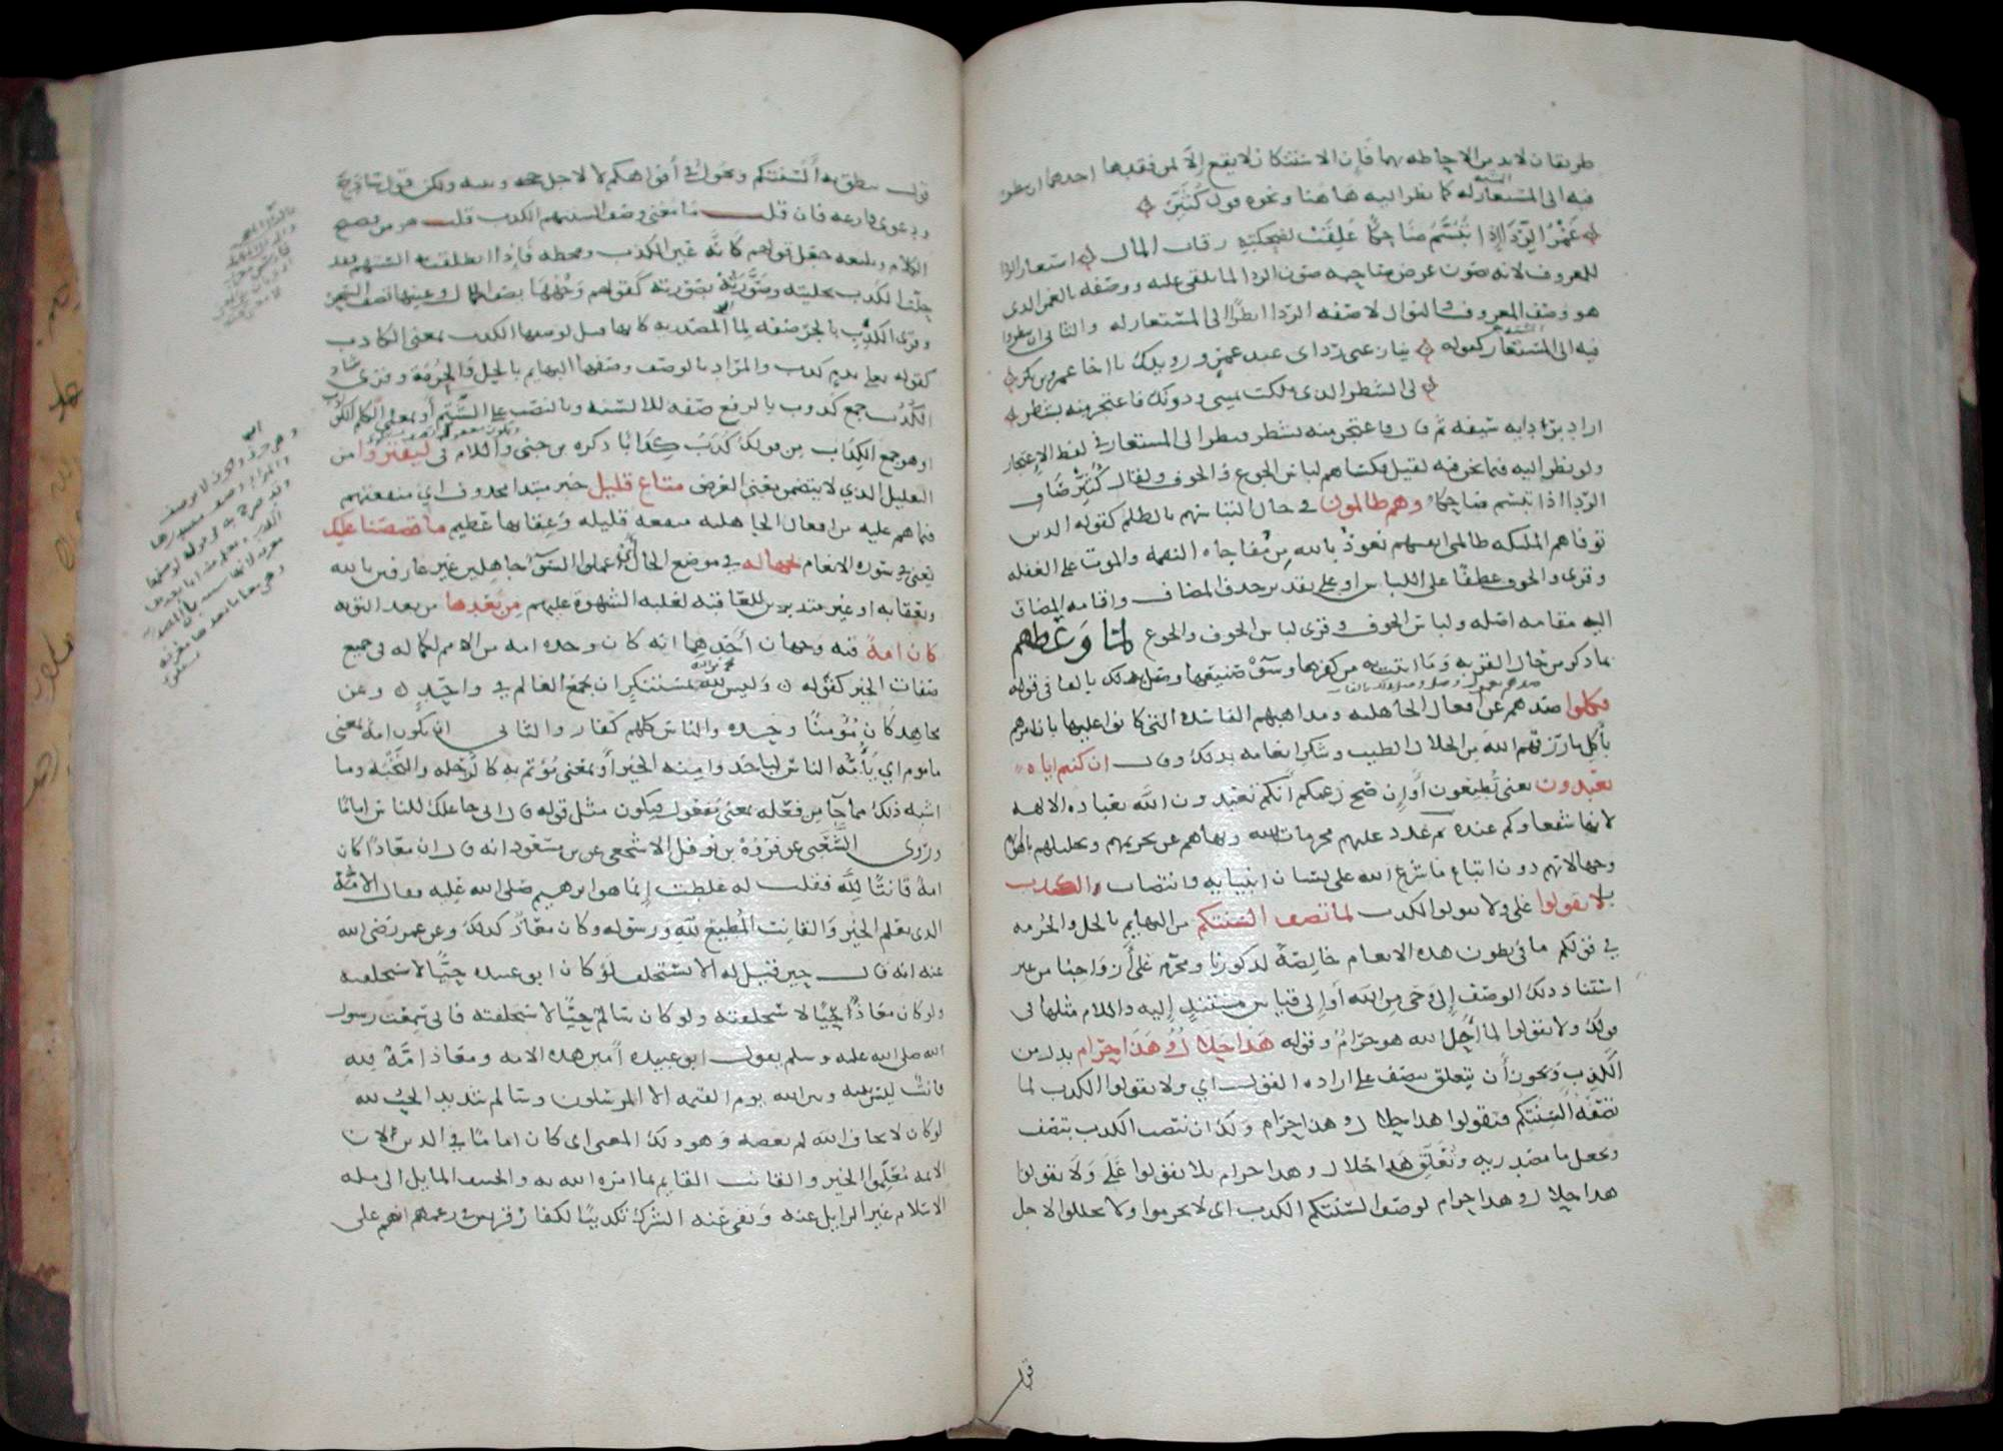 طريقان لابد من الاحاطه بهما فان الاستنكار لا يقع الا لمن فقدهما احدهما ان ينظروا
فيه الى المستعار له كما نظر اليه هاهنا ونحوه قول كثير
غمر الردا اذا تبسم ضاحكا غلقت لضحكته رقاب المال استعار الردا
للمعروف لانه يصون عرض صاحبه صون الردا لما يلقى عليه ووصفه بالغمر الذى
هو وصف المعروف والنوال لا صفه الردا نظرا الى المستعار له والثانى ان ينظروا
فيه الى المستعار كقوله ينازعنى ردائى عبد عمرو رويدك يا اخا عمرو بن بكر
لى الشطر الذى ملكت يمينى ودونك فاعتجر منه بشطر
اراد بردايه سيفه ثم قال فاعتجر منه بشطر فنظر الى المستعار فى لفظ الاعتجار
ولو نظر اليه فيما نحن فيه لقيل فكساهم لباس الجوع والخوف ولقال كثير ضافى
الردا اذا تبسم ضاحكا وهم ظالمون فى حال التباسهم بالظلم كقوله الذين
توفاهم الملئكه ظالمى انفسهم نعوذ بالله من مفاجاه النقمه والموت على الغفله
وقرى والخوف عطفا على اللباس او على تقدير حذف المضاف واقامه المضاف
اليه مقامه اصله ولباس الخوف وقرى لباس الخوف والجوع لما وعظهم
بما ذكر من حال القريه وما اتيت به من كفرها وسوء صنيعها وصل بذلك بالفا فى قوله
فكلوا صدهم عن افعال الجاهليه ومذاهبهم الفاسده التى كانوا عليها بان امرهم
باكل ما رزقهم الله من الحلال الطيب وشكر انعامه بذلك وقال ان كنتم اياه
تعبدون يعنى تطيعون او ان صح زعمكم انكم تعبدون الله بعباده الالهه
لانها شفعاوكم عنده ثم عدد عليهم محرمات الله ونهاهم عن تحريمهم وتحليلهم باهوائهم
وجهالاتهم دون اتباع ما شرع الله على لسان انبيايه وانتصاب الكذب
بلا تقولوا على ولا تقولوا الكذب لما تصف السنتكم من البهايم بالحل والحرمه
فى قولكم ما فى بطون هذه الانعام خالصه لذكورنا ومحرم على ازواجنا من غير
استناد ذلك الوصف الى وحى من الله او الى قياس مستند اليه واللام مثلها فى
قولك ولا تقولوا لما احل الله هو حرام وقوله هذا حلال وهذا حرام بدل من
الكذب ويجوز ان يتعلق بتصف على اراده القول اى ولا تقولوا الكذب لما
تصفه السنتكم فتقولوا هذا حلال وهذا حرام ولك ان تنصب الكذب بتصف
وتجعل ما مصدريه وتعلق هذا حلال وهذا حرام بلا تقولوا على ولا تقولوا
هذا حلال وهذا حرام لوصف السنتكم الكذب اى لا تحرموا ولا تحللوا لاجل
قول
قول ينطق به السنتكم ويجول فى افواهكم لا لاجل حجه وبينه ولكن قول ساذج
ودعوى فارغه فان قلت ما معنى وصف السنتهم الكذب قلت هو من فصيح
الكلام وبليغه جعل قولهم كانه عين الكذب ومحضه فاذا نطقت به السنتهم فقد
حلت الكذب بحليته وصورته بصورته كقولهم وجهها يصف الجمال وعينها تصف السحر
وقرى الكذب بالجر صفه لما المصدريه كانه قيل لوصفها الكذب بمعنى الكاذب
كقوله بدم كذب والمراد بالوصف وصفها البهايم بالحل والحرمه وقرى
الكذب جمع كذوب بالرفع صفه للالسنه وبالنصب على الشتم او بمعنى الكلم الكواذب
او هو جمع الكذاب من قولك كذب كذابا ذكره بن جنى واللام فى لتفتروا من
التعليل الذى لا يتضمن معنى الغرض متاع قليل خبر مبتدا محذوف اى منفعتهم
فيما هم عليه من افعال الجاهليه منفعه قليله وعقابها عظيم ما قصصنا عليك
يعنى فى سوره الانعام بجهاله فى موضع الحال اى عملوا السوء جاهلين غير عارفين بالله
وبعقابه او غير متدبرين للعاقبه لغلبه الشهوه عليهم من بعدها من بعد التوبه
كان امة فيه وجهان احدهما انه كان وحده امه من الامم لكماله فى جميع
صفات الخير كقوله وليس لله بمستنكر ان يجمع العالم فى واحد وعن
مجاهد كان مومنا وحده والناس كلهم كفار والثانى ان يكون امه بمعنى
ماموم اى يامه الناس لياخذوا منه الخير او بمعنى موتم به كالرحله والنخبه وما
اشبه ذلك مما جا من فعله بمعنى مفعول فيكون مثل قوله قال انى جاعلك للناس اماما
وروى الشعبى عن فروة بن نوفل الاشجعى عن بن مسعود انه قال ان معاذا كان
امة قانتا لله فقلت له غلطت انما هو ابرهيم صلى الله عليه فقال الامة
الذى يعلم الخير والقانت المطيع لله ورسوله وكان معاذ كذلك وعن عمر رضى الله
عنه انه قال حين قيل له الا تستخلف لو كان ابو عبيده حيا لاستخلفته
ولو كان معاذ حيا لاستخلفته ولو كان سالم حيا لاستخلفته فانى سمعت رسول
الله صلى الله عليه وسلم يقول ابو عبيده امين هذه الامه ومعاذ امة لله
قانت ليس بينه وبين الله يوم القيمه الا المرسلون وسالم شديد الحب لله
لو كان لا يخاف الله لم يعصه وهو ذلك المعنى اى كان اماما فى الدين لان
الايمه معلموا الخير والقانت القايم بما امره الله به والحنيف المايل الى مله
الاسلام غير الزايل عنه ونفى عنه الشرك تكذيبا لكفار قريش فى زعمهم انهم على